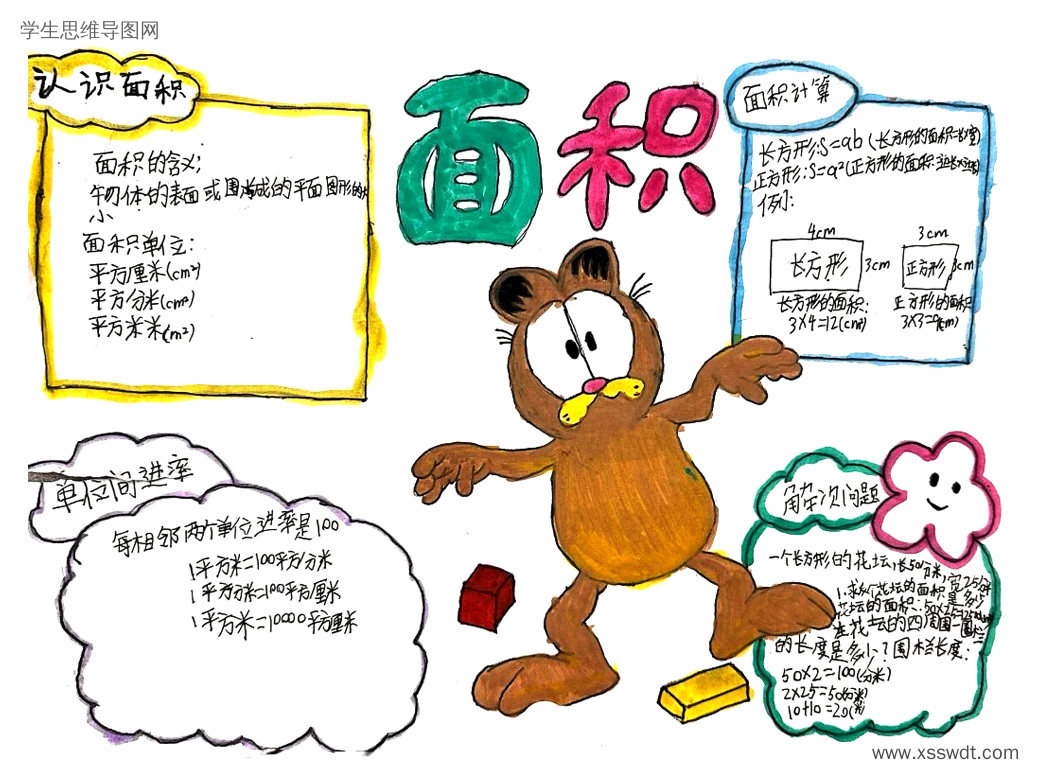 学生思维导图网
面积
认识面积
面积的含义:
物体的表面或围成的平面图形的大
小
面积单位:
平方厘米(cm²)
平方分米(cm²)
平方米米(m²)
面积计算
长方形:S=ab(长方形的面积=长×宽)
正方形:S=a²(正方形的面积=边长×边长)
例:
4cm
长方形
3cm
长方形的面积:
3×4=12(cm²)
3cm
正方形
3cm
正方形的面积
3×3=9(cm)
单位间进率
每相邻两个单位进率是100
1平方米=100平方分米
1平方分米=100平方厘米
1平方米=10000平方厘米
解决问题
一个长方形的花坛,长50分米,宽25分米
1.求这个花坛的面积是多少
花坛的面积:50×25=
在花坛的四周围一圈围栏
的长度是多少?围栏长度:
50×2=100(分米)
2×25=50(分米)
10+10=20(米)
www.xsswdt.com